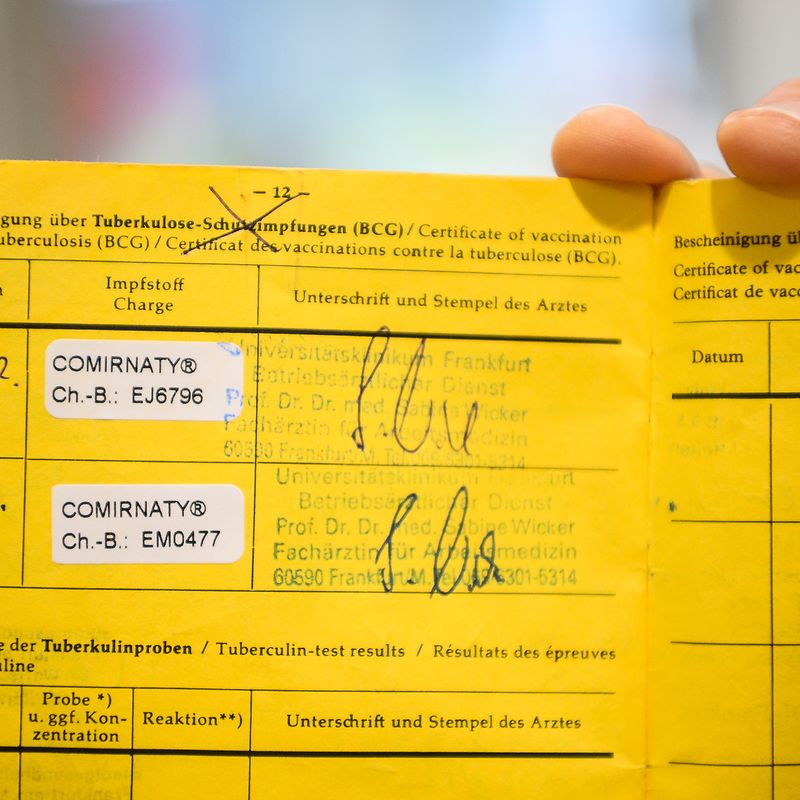 – 12 –
gung über Tuberkulose-Schutzimpfungen (BCG) / Certificate of vaccination
uberculosis (BCG) / Certificat des vaccinations contre la tuberculose (BCG).
Impfstoff
Charge
Unterschrift und Stempel des Arztes
2.
COMIRNATY®
Ch.-B.: EJ6796
Universitätsklinikum Frankfurt
Betriebsärztlicher Dienst
Prof. Dr. Dr. med. Sabine Wicker
Fachärztin für Arbeitsmedizin
60590 Frankfurt/M. Tel. 069/6301-5314
COMIRNATY®
Ch.-B.: EM0477
Universitätsklinikum Frankfurt
Betriebsärztlicher Dienst
Prof. Dr. Dr. med. Sabine Wicker
Fachärztin für Arbeitsmedizin
60590 Frankfurt/M. Tel. 069/6301-5314
e der Tuberkulinproben / Tuberculin-test results / Résultats des épreuves
uline
Probe *)
u. ggf. Kon-
zentration
Reaktion**)
Unterschrift und Stempel des Arztes
Bescheinigung ü
Certificate of vac
Certificat de vacc
Datum